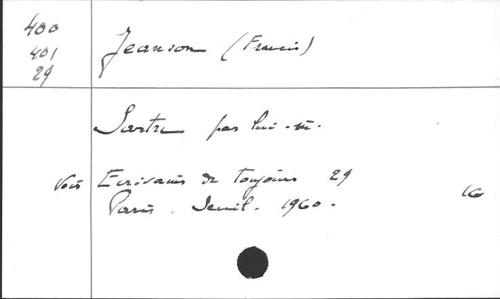 400
401
29
Jeanson (Francis)
Sartre par lui-m.
Voir Ecrivains de toujours 29
Paris. Seuil. 1960.
16